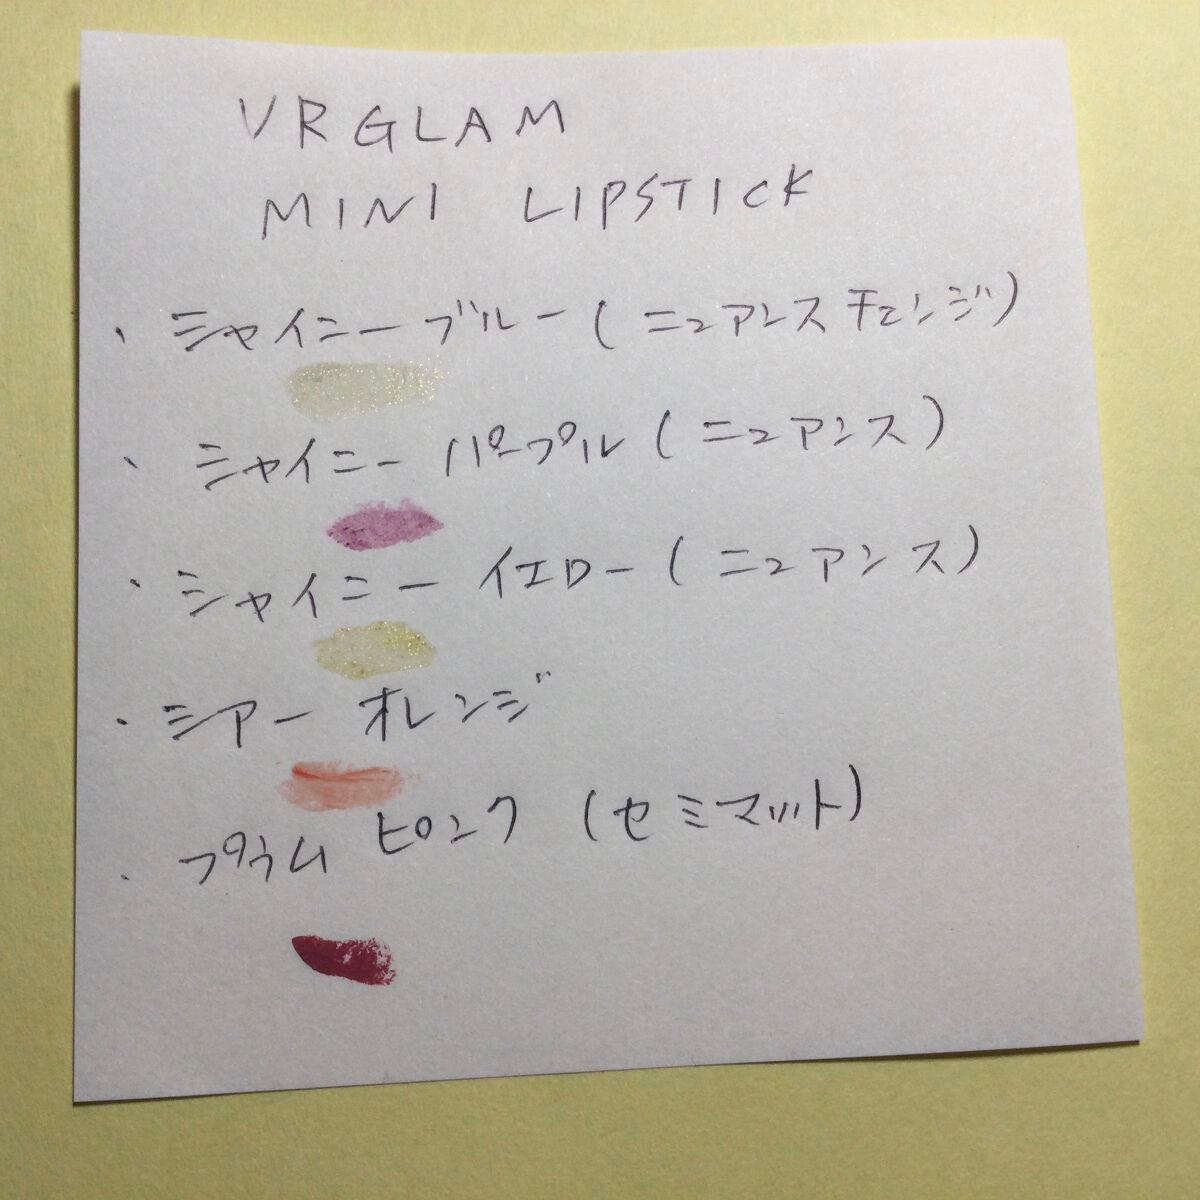 VRGLAM
MINI LIPSTICK
・シャイニーブルー(ニュアンスチェンジ)
・シャイニーパープル(ニュアンス)
・シャイニーイエロー(ニュアンス)
・シアーオレンジ
・プラムピンク(セミマット)